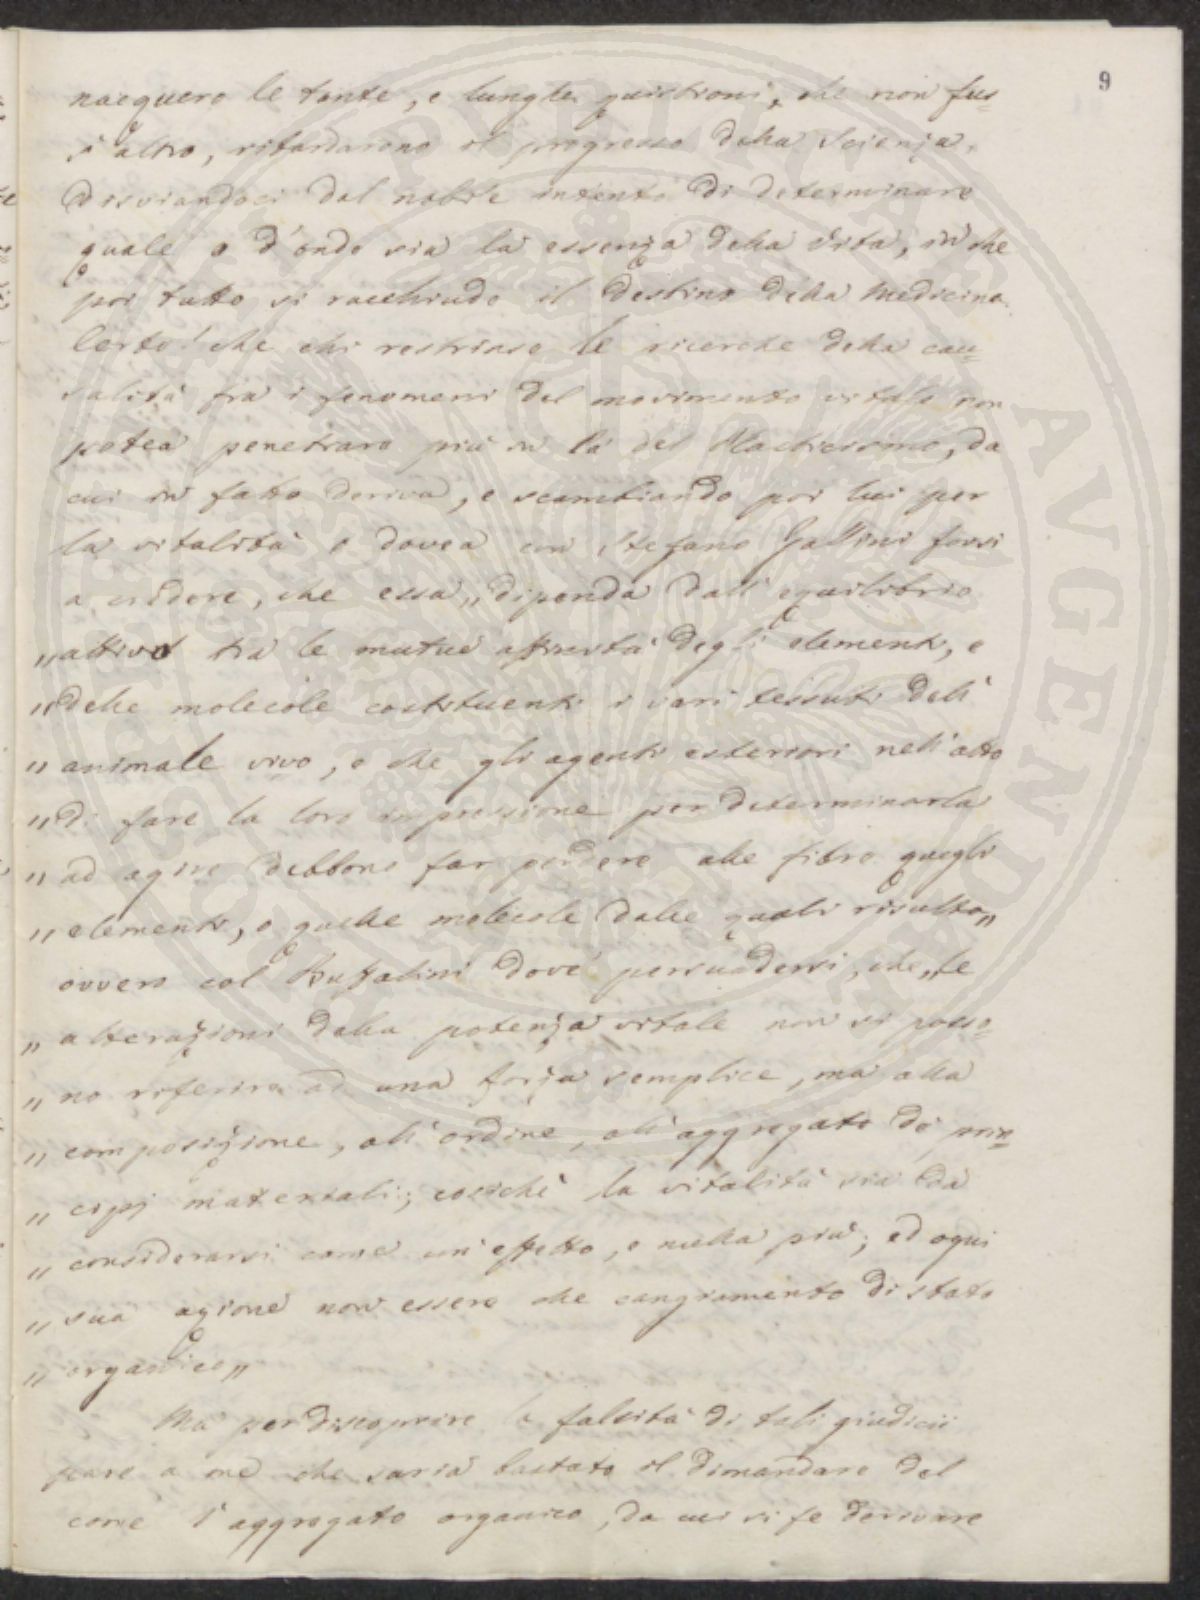 9
nacquero le tante, e lunghe quistioni, che non fus=
s'altro, ritardarono il progresso della Scienza,
disviandoci dal nobile intento di determinare
quale e d'onde sia la essenza della vita, in che
poi tutto si racchiude il destino della Medicina.
Certo! che chi restrinse le ricerche della cau=
salità fra i fenomeni del movimento vitale non
potea penetrare più in là del , da
cui in fatto deriva, e scambiando poi lui per
la vitalità o dovea con Stefano Gallini farsi
a credere, che essa „dipenda dall'equilibrio
„attivo tra le mutue affinità degli elementi, e
„delle molecole costituenti i vari tessuti dell'
„animale vivo, e che gli agenti esteriori nell'atto
„di fare la loro impressione per determinarla
„ad agire debbono far perdere alle fibre quegli
„elementi, e quelle molecole dalle quali risulta„
ovvero col Buffalini dovè persuadersi, che „le
„alterazioni della potenza vitale non si posso=
„no riferire ad una forza semplice, ma alla
„composizione, all'ordine, all'aggregato de' prin=
„cipj materiali; cosichè la vitalità sia da
„considerarsi come un'effetto, e nulla più; ed ogni
„sua azione non essere che cangiamento di stato
„organico„
Ma per discoprire la falsità di tali giudicii
pare a me che saria bastato il dimandare del
come l'aggregato organico, da cui si fe derivare